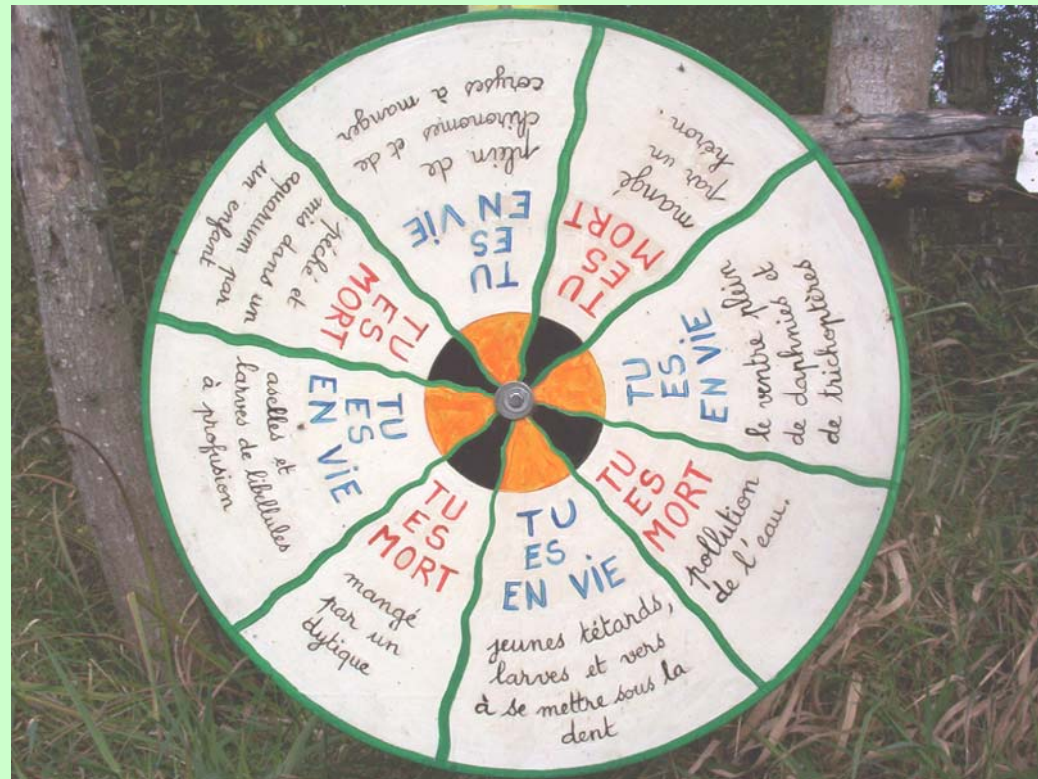 TU
ES
EN VIE
plein de
chironomes et de
coryses à manger
TU
ES
MORT
mangé
par un
héron.
TU
ES
EN VIE
le ventre plein
de daphnies et
de trichoptères
TU
ES
MORT
pollution
de l'eau.
TU
ES
EN VIE
jeunes têtards,
larves et vers
à se mettre sous la
dent
TU
ES
MORT
mangé
par un
dytique
TU
ES
EN VIE
aselles et
larves de libellules
à profusion
TU
ES
MORT
pêché et
mis dans un
aquarium par
un enfant